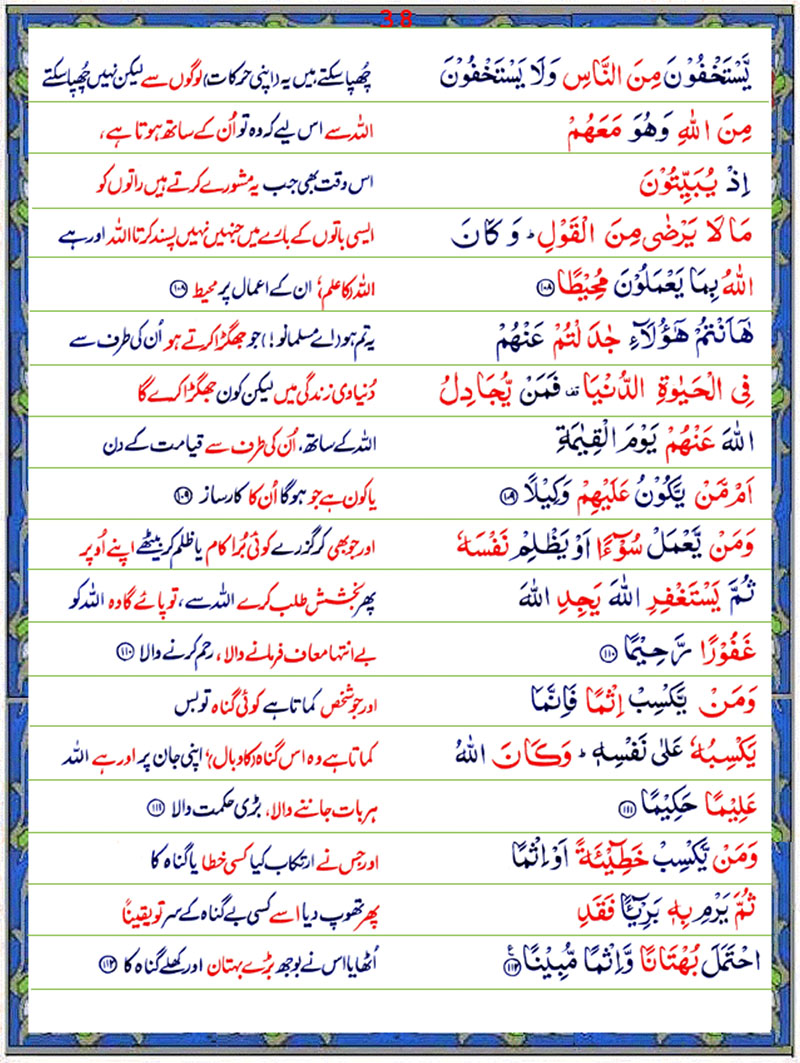 38
يَّسْتَخْفُوْنَ مِنَ النَّاسِ وَلَا يَسْتَخْفُوْنَ چُھپا سکتے ہیں یہ (اپنی حرکات) لوگوں سے لیکن نہیں چُھپا سکتے
مِنَ اللّٰهِ وَهُوَ مَعَهُمْ اللہ سے اس لیے کہ وہ تو اُن کے ساتھ ہوتا ہے،
اِذْ يُبَيِّتُوْنَ اس وقت بھی جب یہ مشورے کرتے ہیں راتوں کو
مَا لَا يَرْضٰى مِنَ الْقَوْلِ ؕ وَ كَانَ ایسی باتوں کے بارے میں جنہیں نہیں پسند کرتا اللہ اور ہے
اللّٰهُ بِمَا يَعْمَلُوْنَ مُحِيْطًا ۝۱۰۸ اللہ (کا علم) ان کے اعمال پر محیط ۝۱۰۸
هٰۤاَنْتُمْ هٰٓؤُلَآءِ جٰدَلْتُمْ عَنْهُمْ یہ تم ہو (اے مسلمانو!) جو جھگڑا کرتے ہو اُن کی طرف سے
فِى الْحَيٰوةِ الدُّنْيَا قف فَمَنْ يُّجَادِلُ دُنیاوی زندگی میں لیکن کون جھگڑا کرے گا
اللّٰهَ عَنْهُمْ يَوْمَ الْقِيٰمَةِ اللہ کے ساتھ، اُن کی طرف سے قیامت کے دن
اَمْ مَّنْ يَّكُوْنُ عَلَيْهِمْ وَكِيْلًا ۝۱۰۹ یا کون ہے جو ہوگا اُن کا کارساز ۝۱۰۹
وَمَنْ يَّعْمَلْ سُوْٓءًا اَوْ يَظْلِمْ نَفْسَهٗ اور جو بھی کر گزرے کوئی بُرا کام یا ظلم کر بیٹھے اپنے اُوپر
ثُمَّ يَسْتَغْفِرِ اللّٰهَ يَجِدِ اللّٰهَ پھر بخشش طلب کرے اللہ سے، تو پائے گا وہ اللہ کو
غَفُوْرًا رَّحِيْمًا ۝۱۱۰ بے انتہا معاف فرمانے والا، رحم کرنے والا ۝۱۱۰
وَمَنْ يَّكْسِبْ اِثْمًا فَاِنَّمَا اور جو شخص کماتا ہے کوئی گناہ تو بس
يَكْسِبُهٗ عَلٰى نَفْسِهٖ ؕ وَكَانَ اللّٰهُ کماتا ہے وہ اس گناہ (کا وبال) اپنی جان پر اور ہے اللہ
عَلِيْمًا حَكِيْمًا ۝۱۱۱ ہر بات جاننے والا، بڑی حکمت والا ۝۱۱۱
وَمَنْ يَّكْسِبْ خَطِيْٓئَةً اَوْ اِثْمًا اور جس نے ارتکاب کیا کسی خطا یا گناہ کا
ثُمَّ يَرْمِ بِهٖ بَرِيْٓـًٔا فَقَدِ پھر تھوپ دیا اسے کسی بے گناہ کے سر تو یقیناً
احْتَمَلَ بُهْتَانًا وَّاِثْمًا مُّبِيْنًا ۝۱۱۲ ع اُٹھایا اس نے بوجھ بڑے بہتان اور کھلے گناہ کا ۝۱۱۲